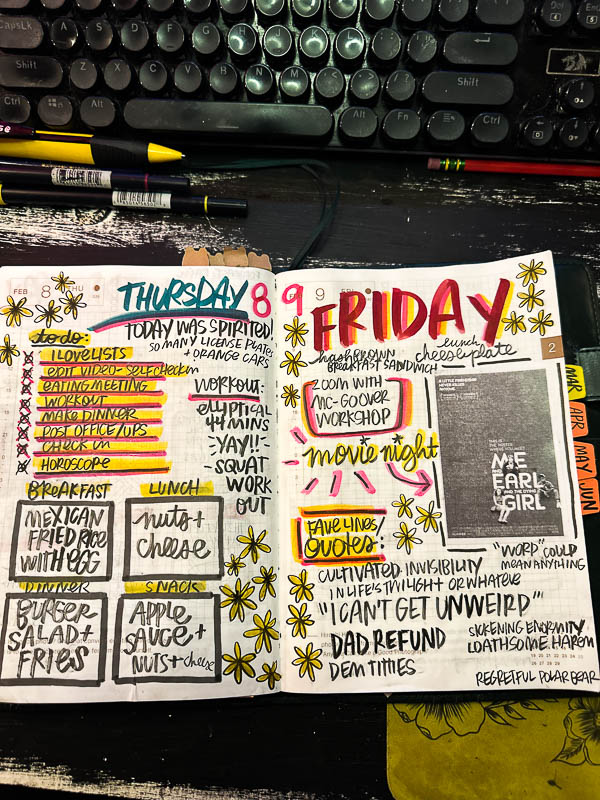 CapsLk A S D F G H J K L
Shift Z X C V B N M Shift
Ctrl Alt Alt Fn Ctrl
FEB 8 THU
THURSDAY 8
TODAY WAS SPIRITED!
SO MANY LICENSE PLATES
+ ORANGE CARS
to do:
I LOVE LISTS
EDIT VIDEO - SELF CHECK IN
EATING MEETING
WORKOUT
MAKE DINNER
POST OFFICE/UPS
CHECK IN
HOROSCOPE
WORKOUT:
ELLIPTICAL
44 MINS
-YAY!!-
-SQUAT
WORK
OUT
BREAKFAST
MEXICAN
FRIED RICE
WITH EGG
LUNCH
nuts +
cheese
DINNER
BURGER
SALAD +
FRIES
SNACK
APPLE
SAUCE +
NUTS + cheese
9 9 FRI
FRIDAY
hashbrown
BREAKFAST SANDWICH
lunch
cheesy plate
2
ZOOM WITH
MC-GOOVER
WORKSHOP
movie night
A LITTLE FRIENDSHIP
NEVER KILLED
ANYONE.
THIS IS
THE
ME
AND
EARL
AND THE DYING
GIRL
FAVE LINES/
QUOTES:
"WORD" COULD
MEAN ANYTHING
CULTIVATED INVISIBILITY
IN LIFE'S TWILIGHT OR WHATEVE
"I CAN'T GET UNWEIRD"
DAD REFUND
DEM TITTIES
SICKENING ENORMITY
LOATHSOME HAREM
REGRETFUL POLAR BEAR
MAR
APR
MAY
JUN